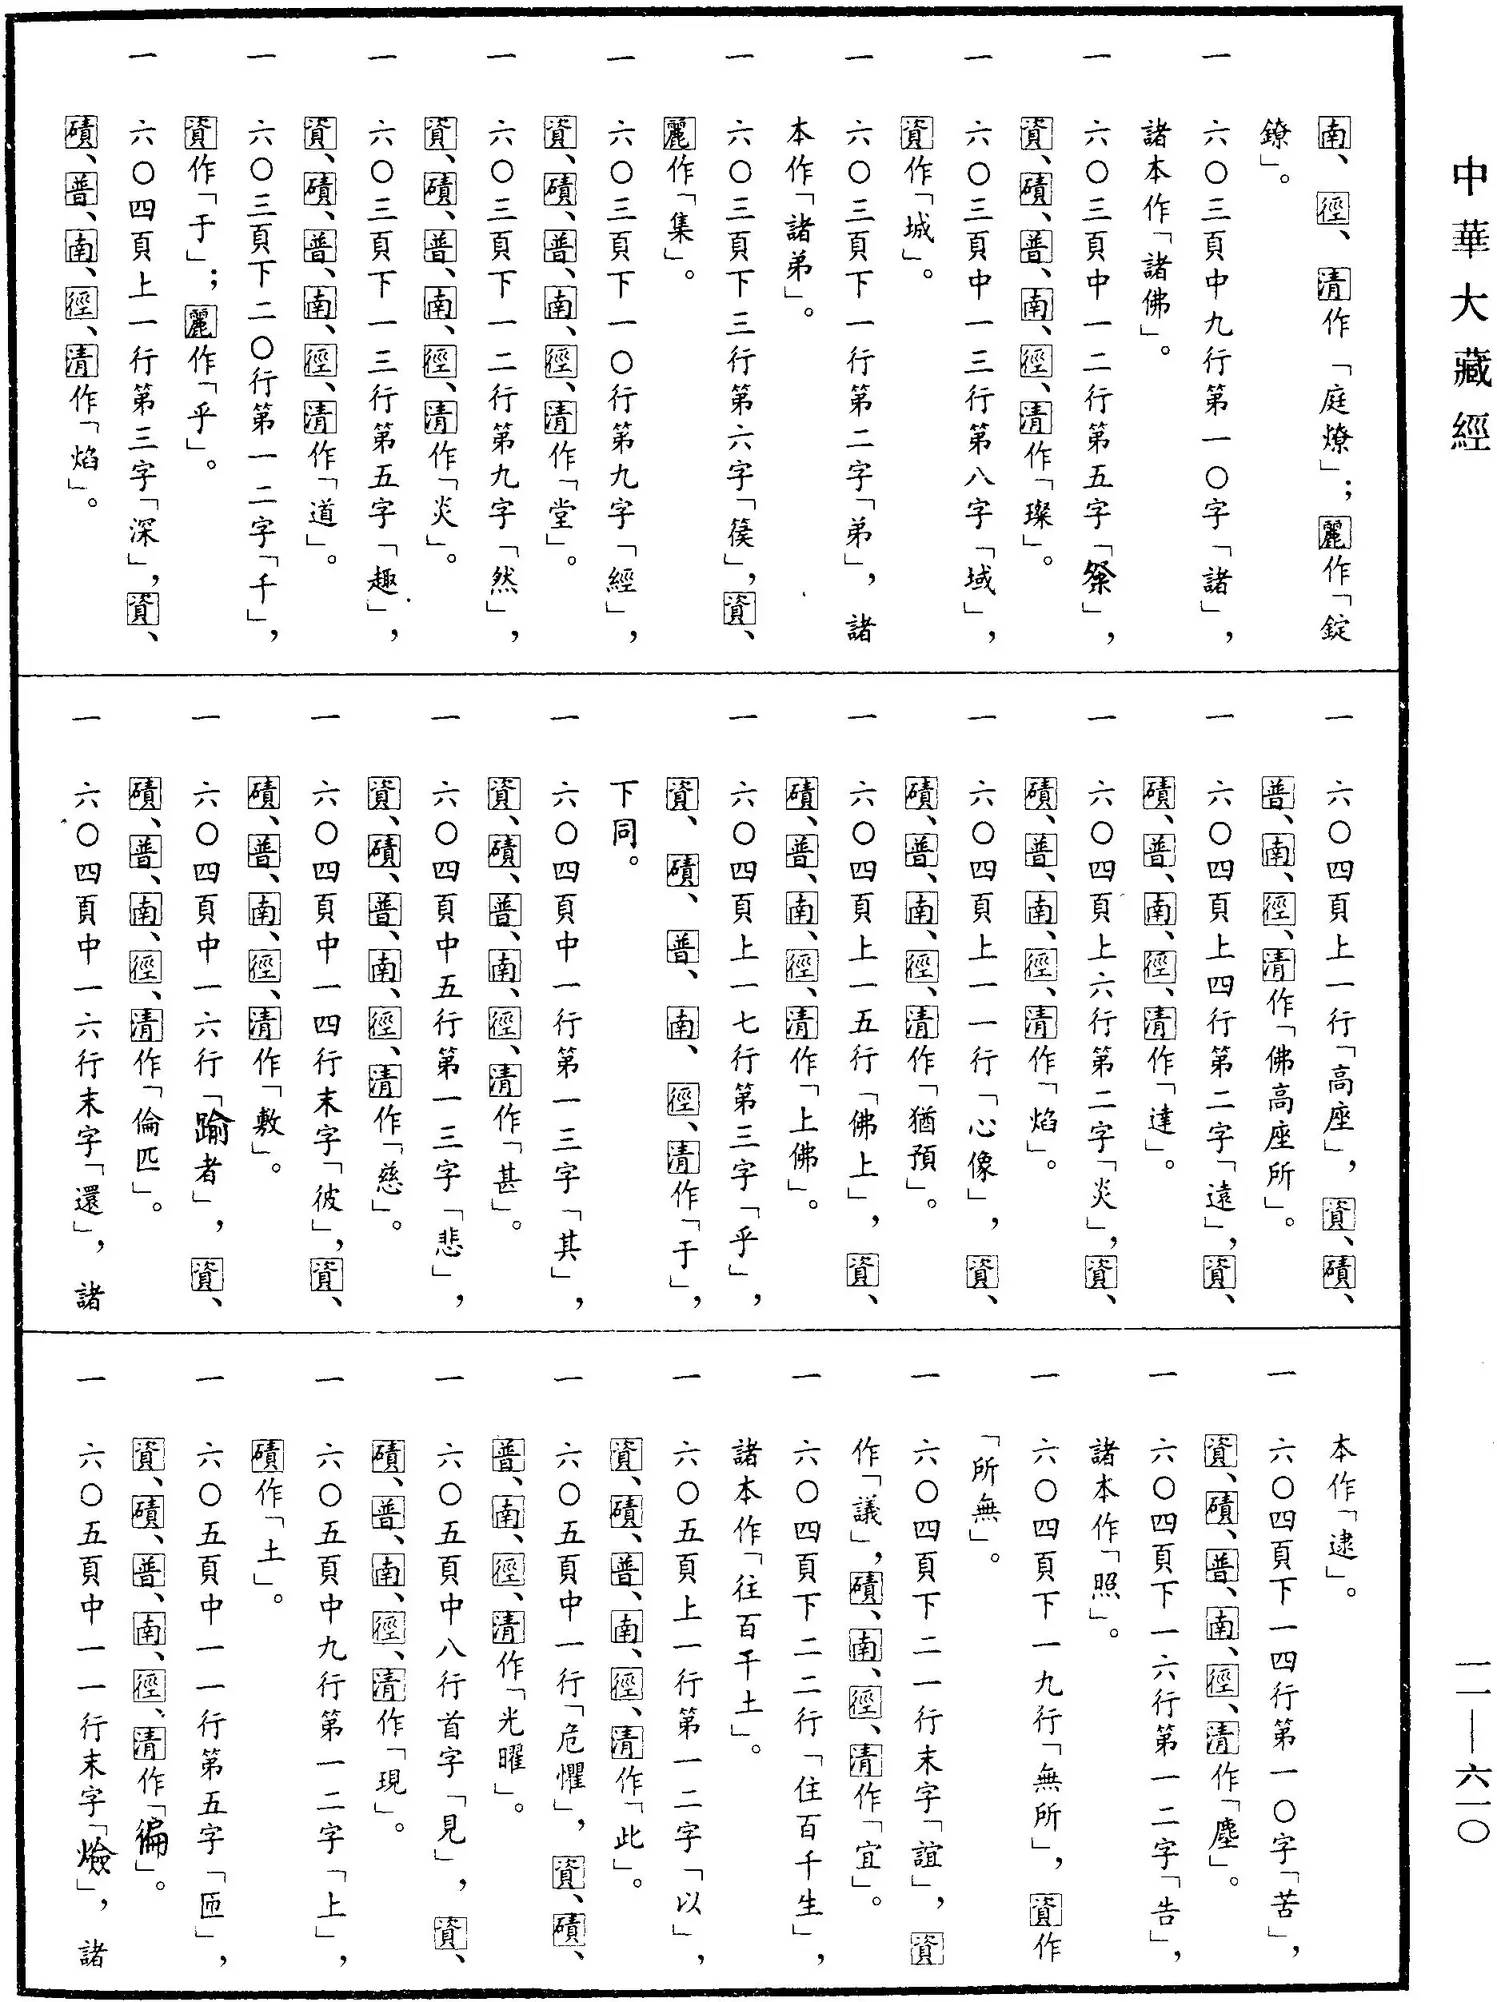 中華大藏經
一一—六一〇
南、徑、清作「庭燎」；麗作「錠
鐐」。
一 六〇三頁中九行第一〇字「諸」，
諸本作「諸佛」。
一 六〇三頁中一二行第五字「粲」，
資、磧、普、南、徑、清作「璨」。
一 六〇三頁中一三行第八字「域」，
資作「城」。
一 六〇三頁下一行第二字「弟」，諸
本作「諸弟」。
一 六〇三頁下三行第六字「篌」，資、
麗作「集」。
一 六〇三頁下一〇行第九字「經」，
資、磧、普、南、徑、清作「堂」。
一 六〇三頁下一二行第九字「然」，
資、磧、普、南、徑、清作「炎」。
一 六〇三頁下一三行第五字「趣」，
資、磧、普、南、徑、清作「道」。
一 六〇三頁下二〇行第一二字「千」，
資作「于」；麗作「乎」。
一 六〇四頁上一行第三字「深」，資、
磧、普、南、徑、清作「焰」。
一 六〇四頁上一行「高座」，資、磧、
普、南、徑、清作「佛高座所」。
一 六〇四頁上四行第二字「遠」，資、
磧、普、南、徑、清作「達」。
一 六〇四頁上六行第二字「炎」，資、
磧、普、南、徑、清作「焰」。
一 六〇四頁上一一行「心像」，資、
磧、普、南、徑、清作「猶預」。
一 六〇四頁上一五行「佛上」，資、
磧、普、南、徑、清作「上佛」。
一 六〇四頁上一七行第三字「乎」，
資、磧、普、南、徑、清作「于」，
下同。
一 六〇四頁中一行第一三字「其」，
資、磧、普、南、徑、清作「甚」。
一 六〇四頁中五行第一三字「悲」，
資、磧、普、南、徑、清作「慈」。
一 六〇四頁中一四行末字「彼」，資、
磧、普、南、徑、清作「敷」。
一 六〇四頁中一六行「踰者」，資、
磧、普、南、徑、清作「倫匹」。
一 六〇四頁中一六行末字「還」，諸
本作「逮」。
一 六〇四頁下一四行第一〇字「苦」，
資、磧、普、南、徑、清作「塵」。
一 六〇四頁下一六行第一二字「告」，
諸本作「照」。
一 六〇四頁下一九行「無所」，資作
「所無」。
一 六〇四頁下二一行末字「誼」，資
作「議」，磧、南、徑、清作「宜」。
一 六〇四頁下二二行「住百千生」，
諸本作「往百千土」。
一 六〇五頁上一行第一二字「以」，
資、磧、普、南、徑、清作「此」。
一 六〇五頁中一行「危懼」，資、磧、
普、南、徑、清作「光曜」。
一 六〇五頁中八行首字「見」，資、
磧、普、南、徑、清作「現」。
一 六〇五頁中九行第一二字「上」，
磧作「土」。
一 六〇五頁中一一行第五字「匝」，
資、磧、普、南、徑、清作「徧」。
一 六〇五頁中一一行末字「燄」，諸